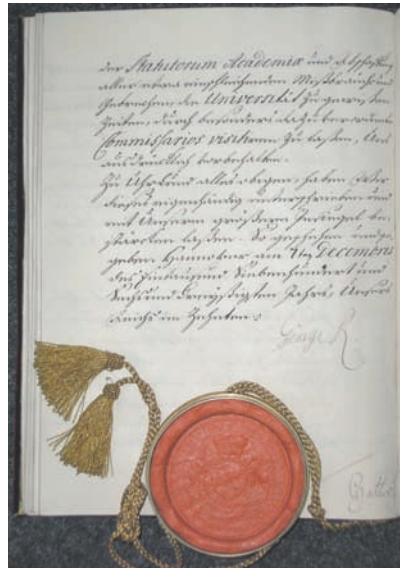 der Statutorum Academiæ und Abschaffung
aller etwa einschleichenden Mißbräuche und
Gebrechen, die Universität zu
Zeiten, durch besonders dazu
Commissarios visitiren zu laßen, Uns
ausdrücklich vorbehalten.
Zu Uhrkund alles obigen, haben Wir
dieses eigenhändig unterschrieben und
mit Unserm größern Insiegel be-
stärcken laßen. So geschehen und ge-
geben Hannover am 7ten Decembris
des Eintausend Siebenhundert und
Sechs und Dreyßigsten Jahrs, Unsers
Reichs im Zehnten.
George R.